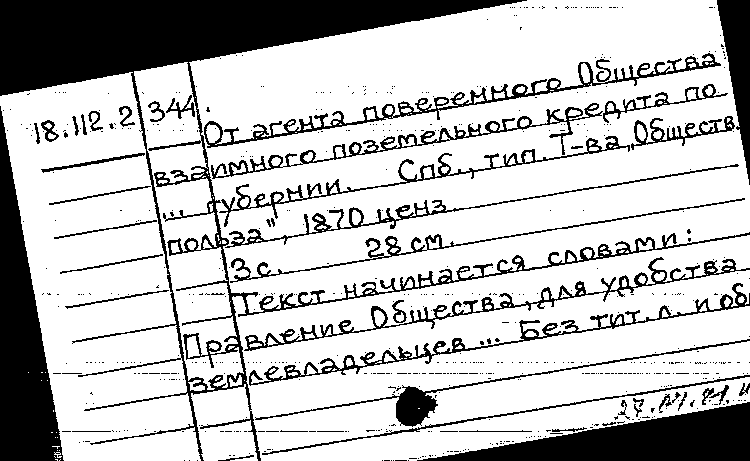 18.112.2 344.
От агента поверенного Общества
взаимного поземельного кредита по
... губернии. Спб., тип. Т-ва „Обществ.
польза", 1870 ценз.
3с. 28 см.
Текст начинается словами:
Правление Общества, для удобства
землевладельцев ... Без тит. л. и обл